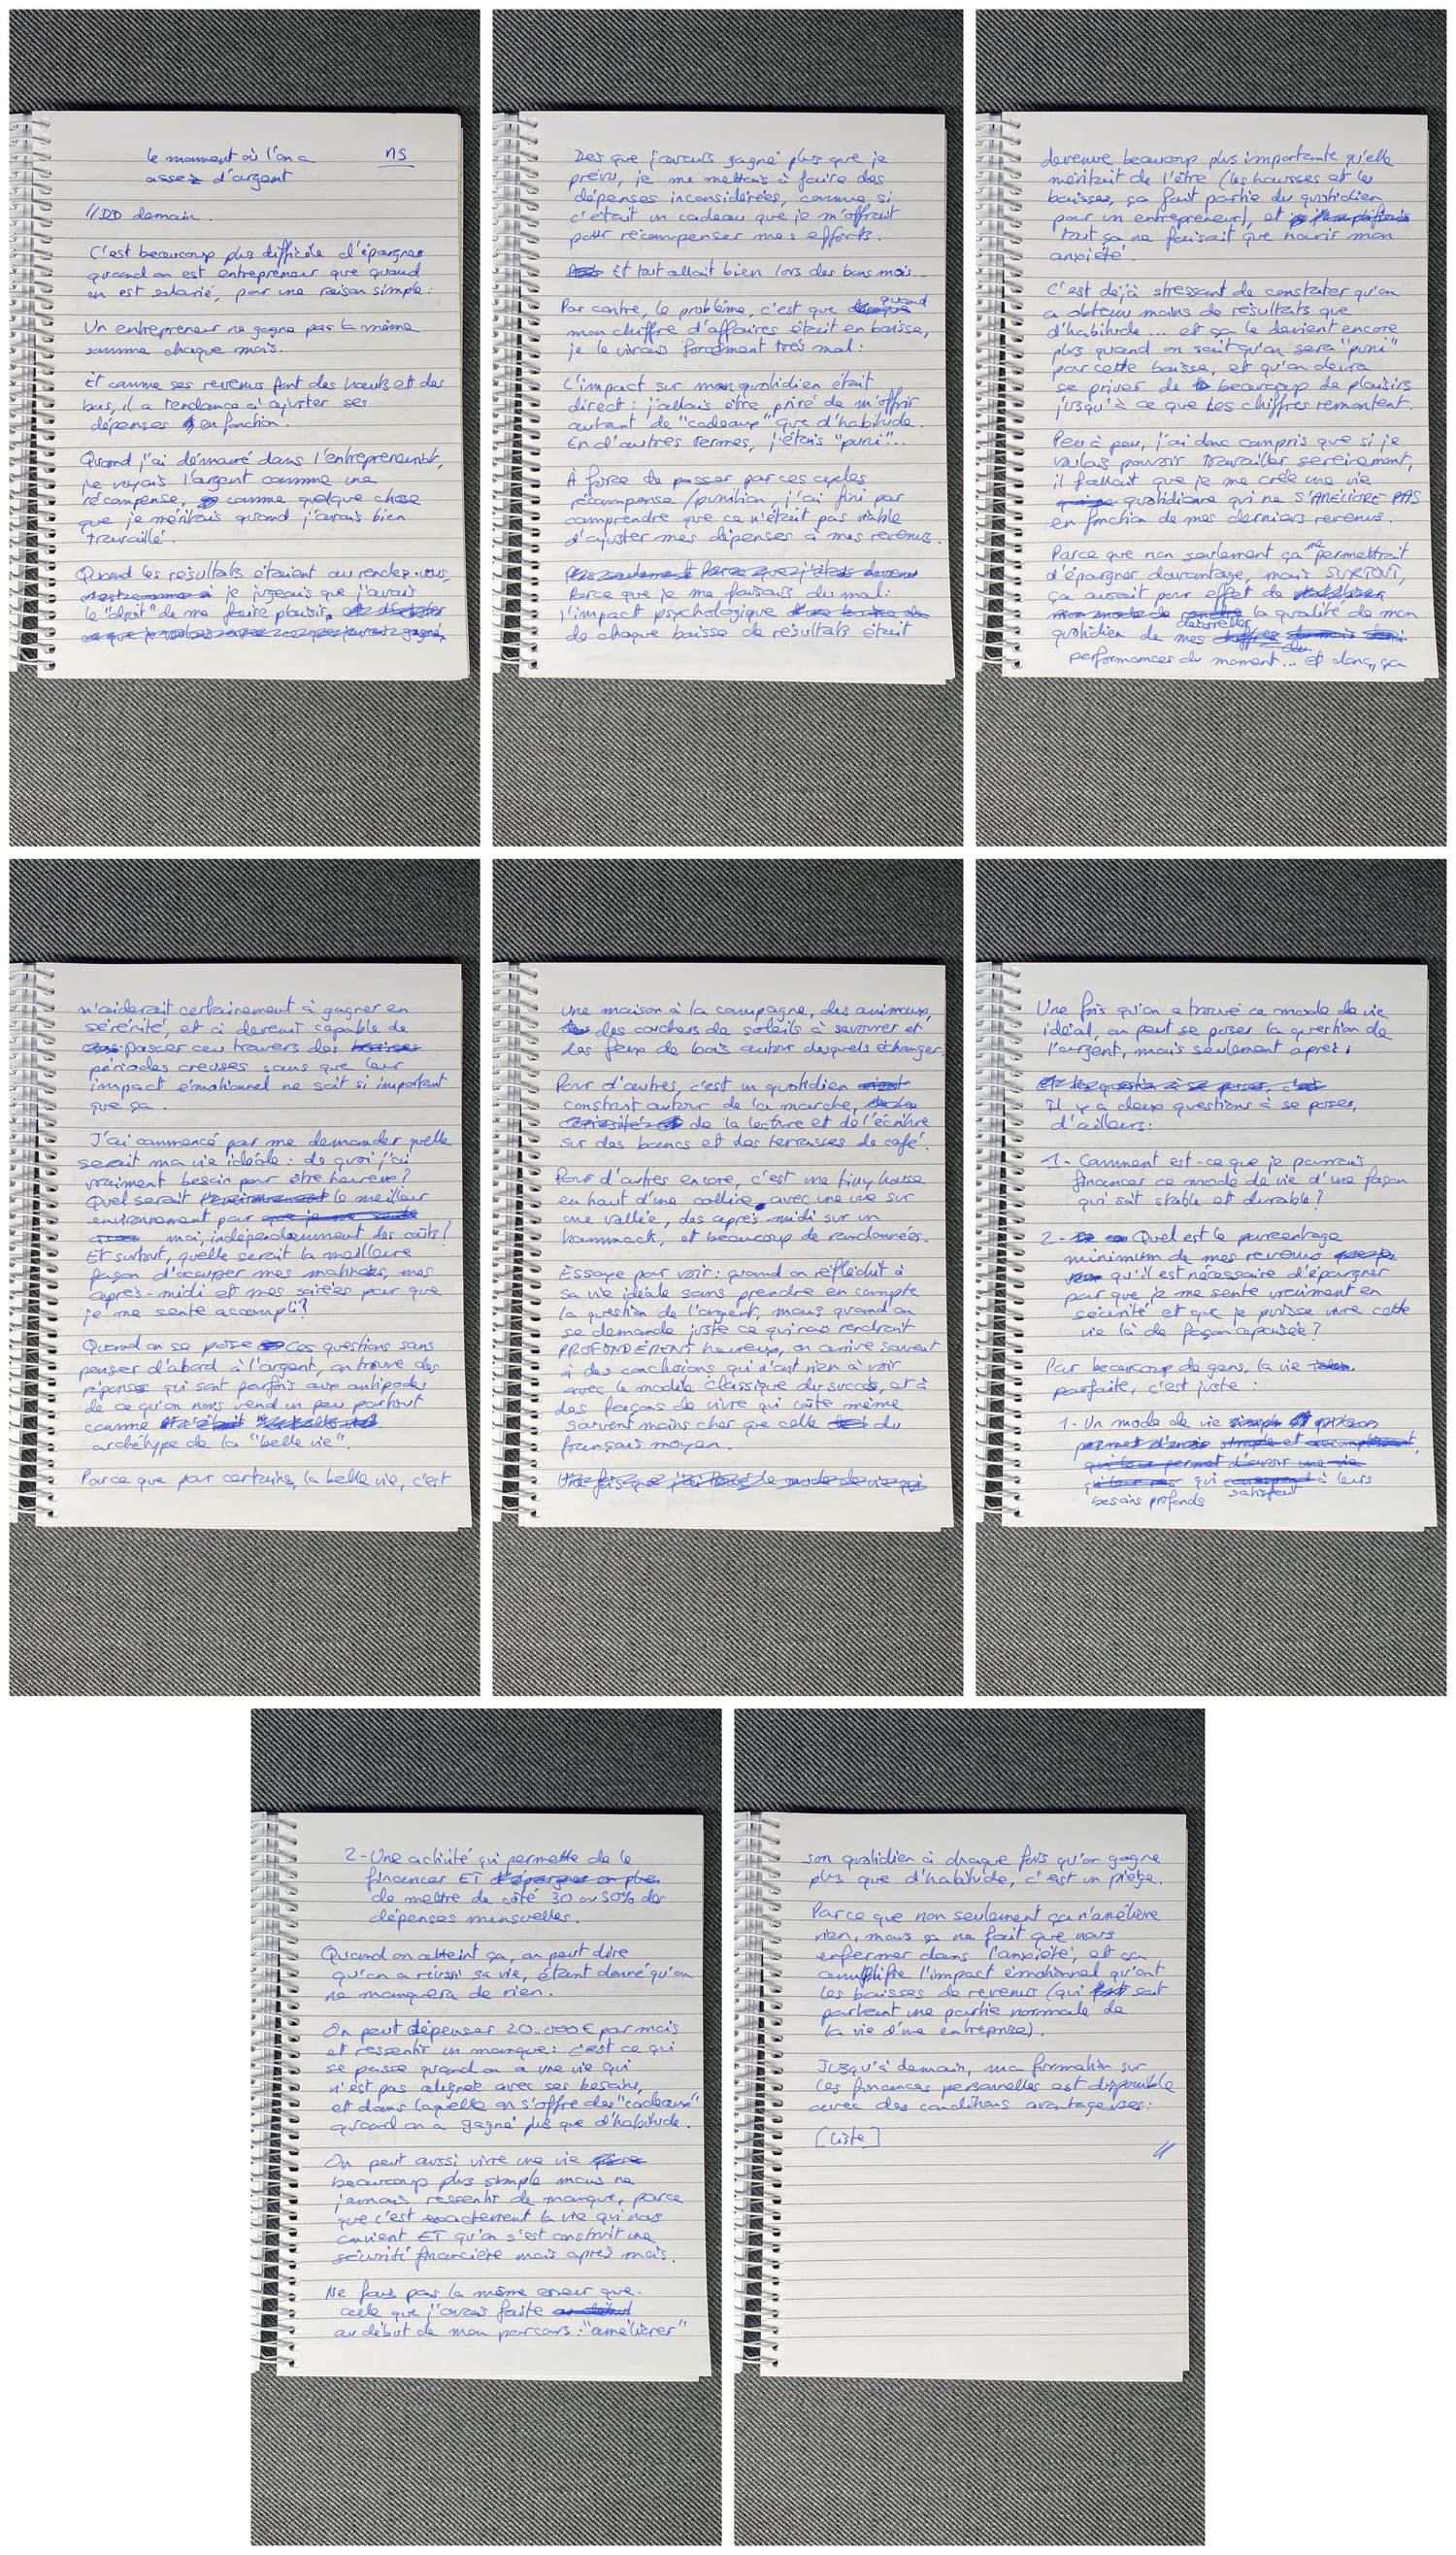 le moment où l'on a
assez d'argent
ns
//DD demain.
C'est beaucoup plus difficile d'épargner
quand on est entrepreneur que quand
on est salarié, pour une raison simple :
Un entrepreneur ne gagne pas la même
somme chaque mois.
Et comme ses revenus font des hauts et des
bas, il a tendance à ajuster ses
dépenses en fonction.
Quand j'ai démarré dans l'entrepreneuriat,
je voyais l'argent comme une
récompense, comme quelque chose
que je méritais quand j'avais bien
travaillé.
Quand les résultats étaient au rendez-vous,
je jugeais que j'avais
le "droit" de me faire plaisir.
Dès que j'avais gagné plus que je
prévu, je me mettais à faire des
dépenses inconsidérées, comme si
c'était un cadeau que je m'offrait
pour récompenser mes efforts.
Et tout allait bien lors des bons mois...
Par contre, le problème, c'est que quand
mon chiffre d'affaires était en baisse,
je le vivais forcément très mal :
L'impact sur mon quotidien était
direct : j'allais être privé de m'offrir
autant de "cadeaux" que d'habitude.
En d'autres termes, j'étais "puni"...
À force de passer par ces cycles
récompense/punition, j'ai fini par
comprendre que ce n'était pas viable
d'ajuster mes dépenses à mes revenus.
Parce que je me faisais du mal :
l'impact psychologique
de chaque baisse de résultats était
devenue beaucoup plus importante qu'elle
méritait de l'être (les hausses et les
baisses, ça fait partie du quotidien
pour un entrepreneur), et
tout ça ne faisait que nourir mon
anxiété.
C'est déjà stressant de constater qu'on
a obtenu moins de résultats que
d'habitude... et ça le devient encore
plus quand on sait qu'on sera "puni"
par cette baisse, et qu'on devra
se priver de beaucoup de plaisirs
jusqu'à ce que les chiffres remontent.
Peu à peu, j'ai donc compris que si je
voulais pouvoir travailler sereinement,
il fallait que je me crée une vie
quotidienne qui ne S'AMÉLIORE PAS
en fonction de mes derniers revenus.
Parce que non seulement ça me permettrait
d'épargner davantage, mais SURTOUT,
ça aurait pour effet de
décorréller la qualité de mon
quotidien de mes
performances du moment... et donc, ça
m'aiderait certainement à gagner en
sérénité, et à devenir capable de
passer au travers des
périodes creuses sans que leur
impact émotionnel ne soit si important
que ça.
J'ai commencé par me demander quelle
serait ma vie idéale : de quoi j'ai
vraiment besoin pour être heureux ?
Quel serait le meilleur
environnement pour
moi, indépendamment des coûts ?
Et surtout, quelle serait la meilleure
façon d'occuper mes matinées, mes
après-midi et mes soirées pour que
je me sente accompli ?
Quand on se pose ces questions sans
penser d'abord à l'argent, on trouve des
réponses qui sont parfois aux antipodes
de ce qu'on nous vend un peu partout
comme
archétype de la "belle vie".
Parce que pour certains, la belle vie, c'est
une maison à la campagne, des animaux,
des couchers de soleils à savourer et
des feux de bois autour desquels échanger.
Pour d'autres, c'est un quotidien
construit autour de la marche,
de la lecture et de l'écriture
sur des bancs et des terrasses de café.
Pour d'autres encore, c'est une tiny house
en haut d'une colline, avec une vue sur
une vallée, des après-midi sur un
hammack, et beaucoup de randonnées.
Essaye pour voir : quand on réfléchit à
sa vie idéale sans prendre en compte
la question de l'argent, mais quand on
se demande juste ce qui nous rendrait
PROFONDÉMENT heureux, on arrive souvent
à des conclusions qui n'ont rien à voir
avec le modèle classique du succès, et à
des façons de vivre qui coûte même
souvent moins cher que celle du
français moyen.
Une fois qu'on a trouvé ce mode de vie
idéal, on peut se poser la question de
l'argent, mais seulement après :
Il y a deux questions à se poser,
d'ailleurs :
1- Comment est-ce que je pourrais
financer ce mode de vie d'une façon
qui soit stable et durable ?
2- Quel est le pourcentage
minimum de mes revenus
qu'il est nécessaire d'épargner
pour que je me sente vraiment en
sécurité et que je puisse vivre cette
vie là de façon apaisée ?
Pour beaucoup de gens, la vie
parfaite, c'est juste :
1- Un mode de vie
qui satisfait à leurs
besoins profonds
2- Une activité qui permette de le
financer ET
de mettre de côté 30 ou 50% des
dépenses mensuelles.
Quand on atteint ça, on peut dire
qu'on a réussi sa vie, étant donné qu'on
ne manquera de rien.
On peut dépenser 20.000€ par mois
et ressentir un manque : c'est ce qui
se passe quand on a une vie qui
n'est pas alignée avec ses besoins,
et dans laquelle on s'offre des "cadeaux"
quand on a gagné plus que d'habitude.
On peut aussi vivre une vie
beaucoup plus simple mais ne
jamais ressentir de manque, parce
que c'est exactement la vie qui nous
convient ET qu'on s'est construit une
sécurité financière mois après mois.
Ne fais pas la même erreur que
celle que j'avais faite
au début de mon parcours : "améliorer"
son quotidien à chaque fois qu'on gagne
plus que d'habitude, c'est un piège.
Parce que non seulement ça n'améliore
rien, mais ça ne fait que nous
enfermer dans l'anxiété, et ça
amplifie l'impact émotionnel qu'ont
les baisses de revenus (qui sont
pourtant une partie normale de
la vie d'une entreprise).
Jusqu'à demain, ma formation sur
les finances personnelles est disponible
avec des conditions avantageuses :
[Liste]
//